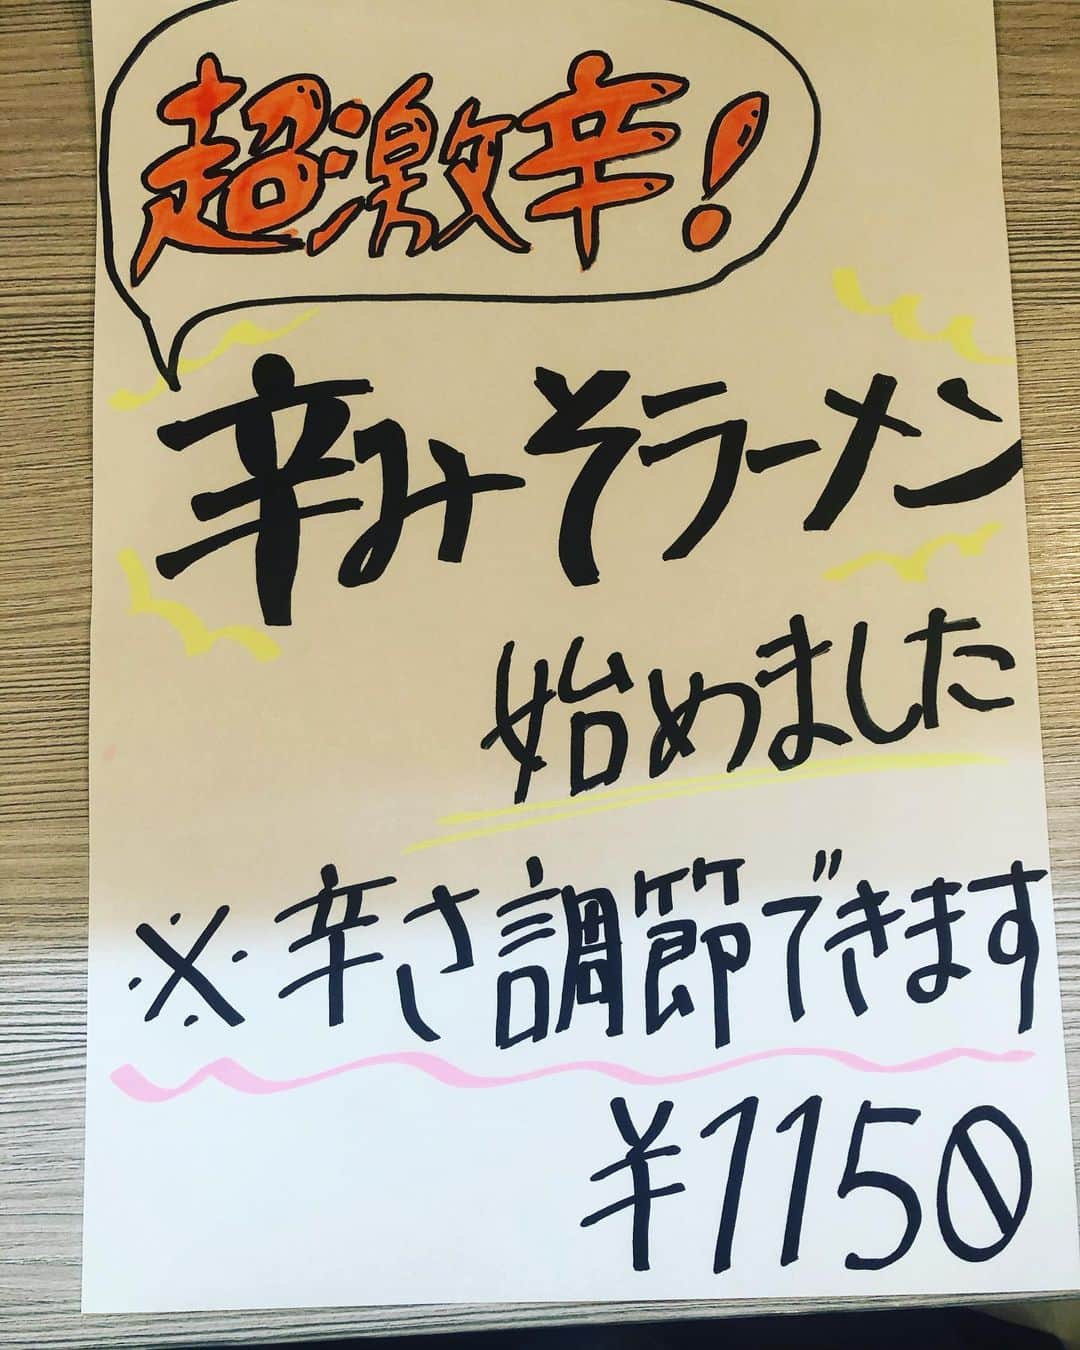 超激辛!
辛みそラーメン
始めました
※辛さ調節できます
¥1150